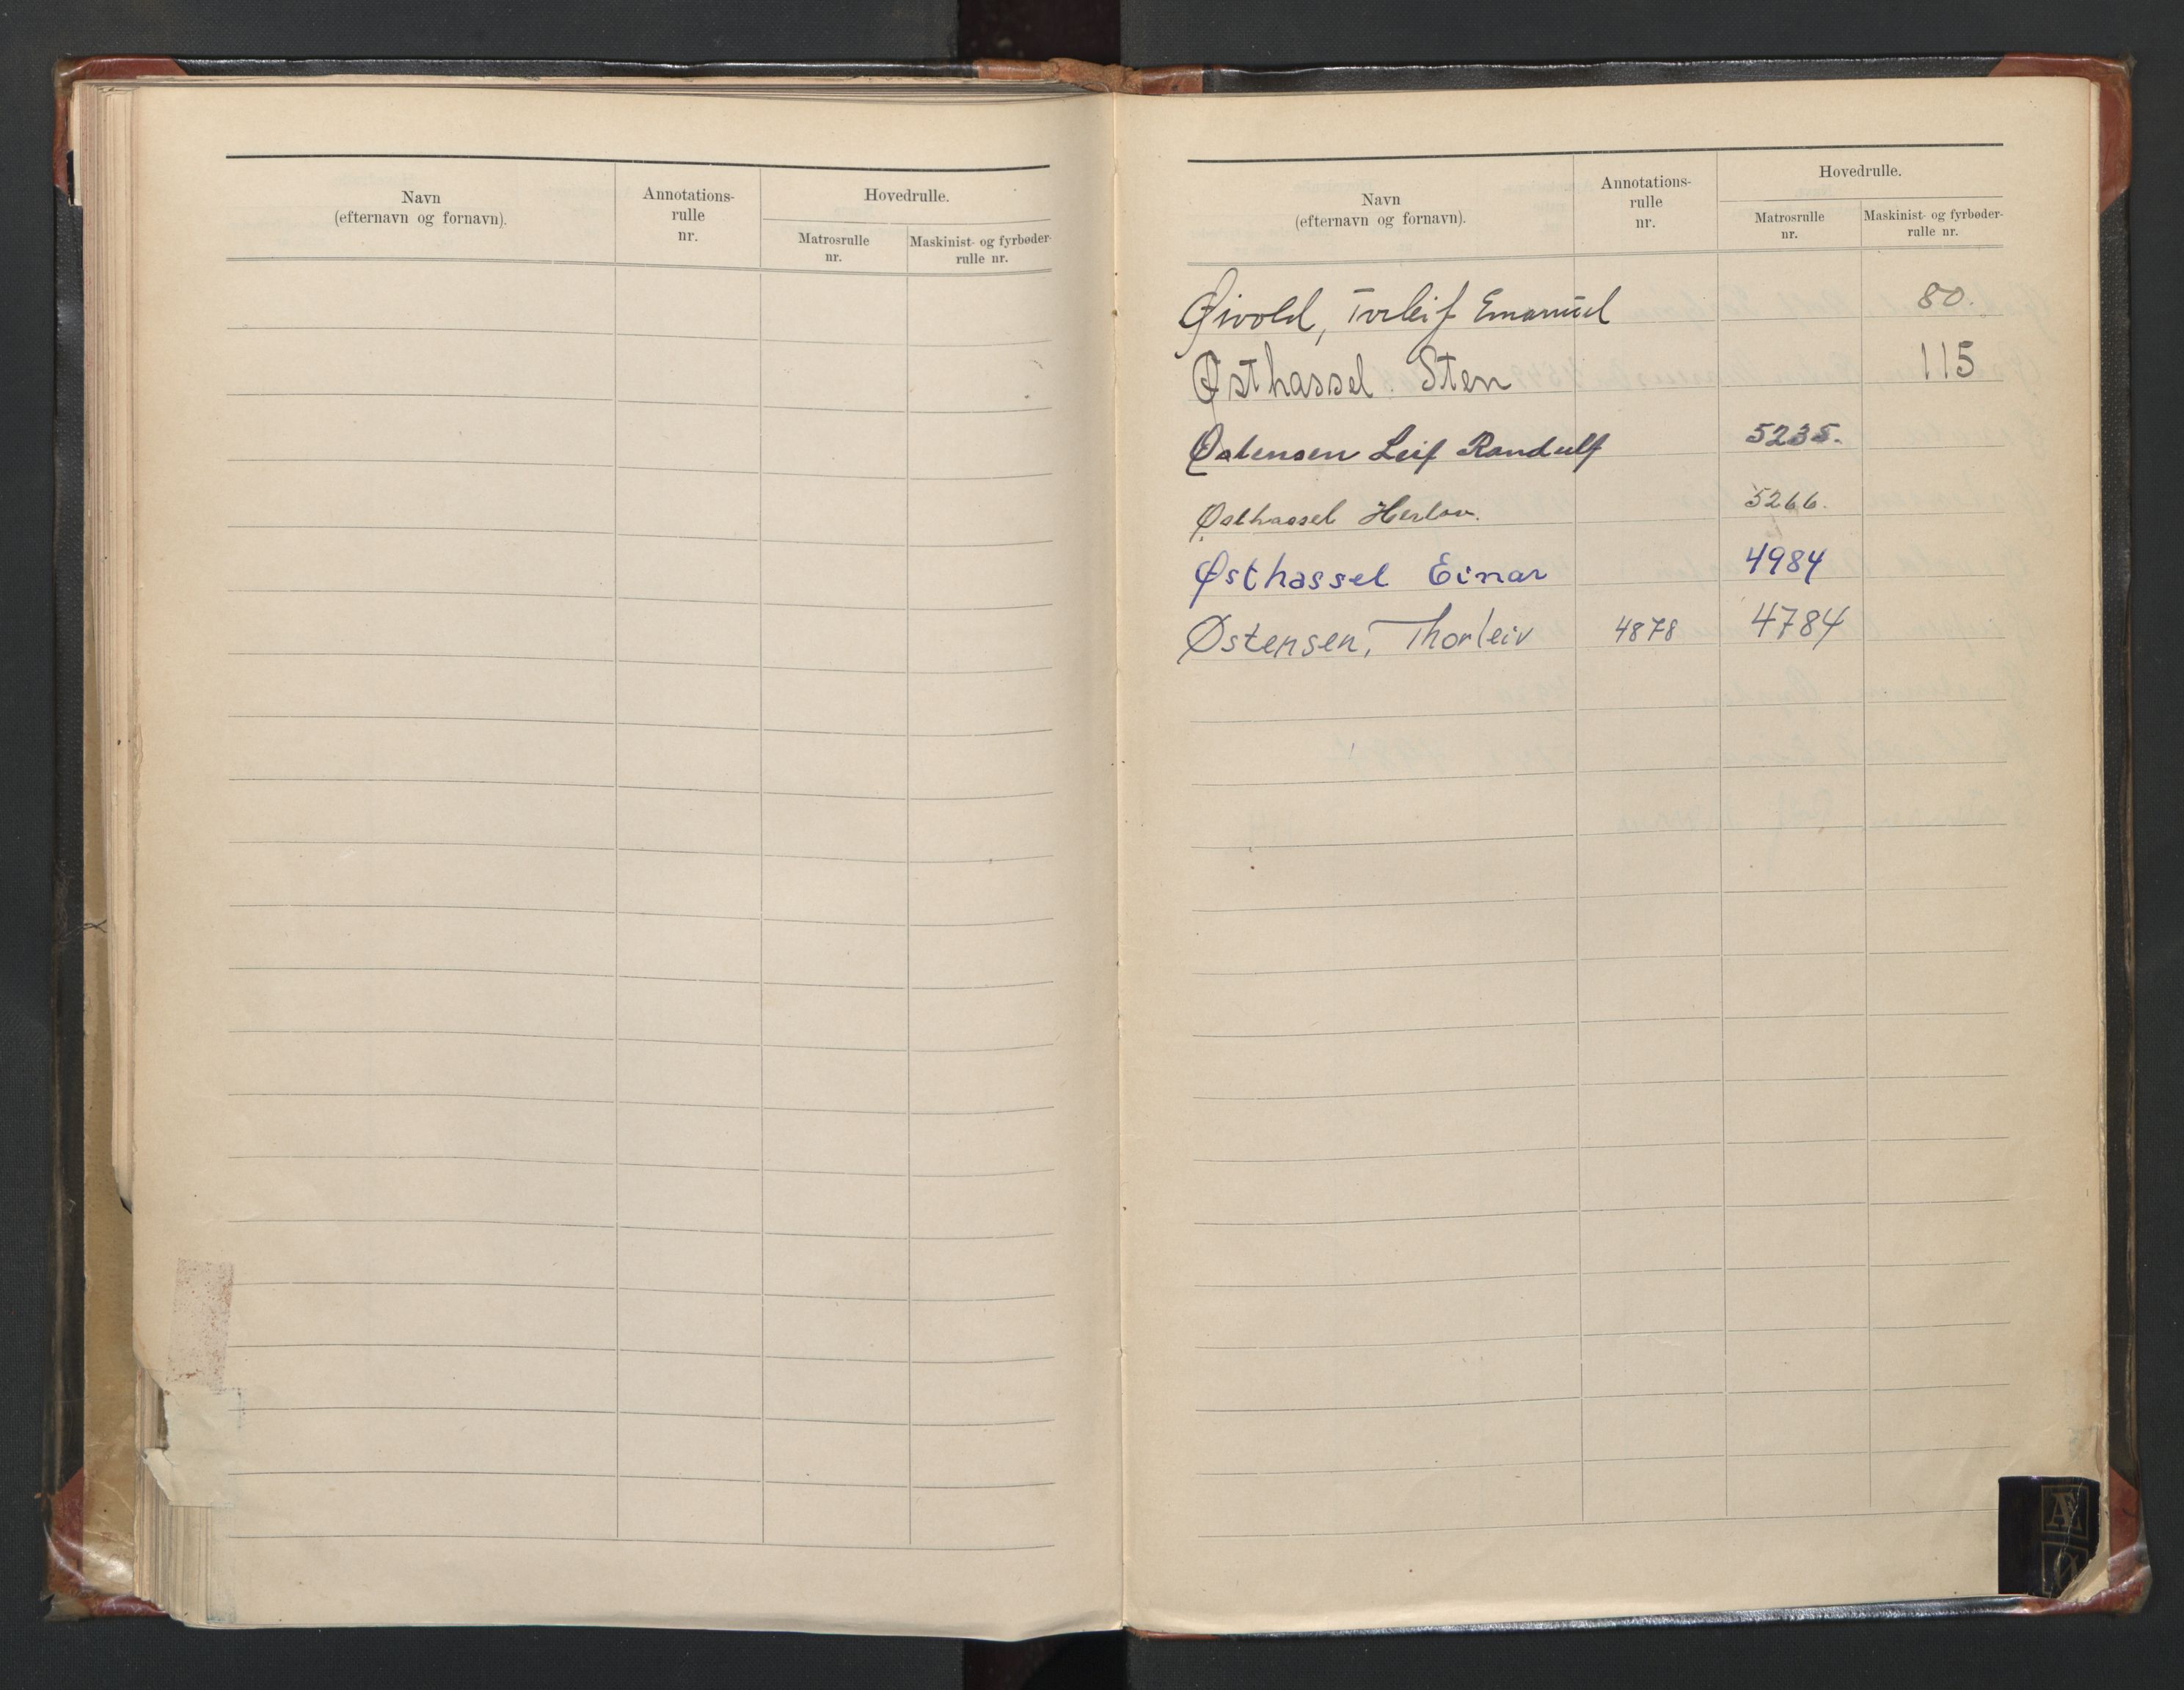 Navn
(efternavn og fornavn).
Annotations-
rulle
nr.
Hovedrulle.
Matrosrulle
nr.
Maskinist- og fyrbøder-
rulle nr.
Navn
(efternavn og fornavn).
Annotations-
rulle
nr.
Hovedrulle.
Matrosrulle
nr.
Maskinist- og fyrbøder-
rulle nr.
Øivold, Torleif Emanuel 80.
Østhassel. Sten 115
Østensen Leif Randulf 5235.
Østhassel Herlov. 5266.
Østhassel Einar 4984
Østensen, Thorleiv 4878 4784
Æ
Ø